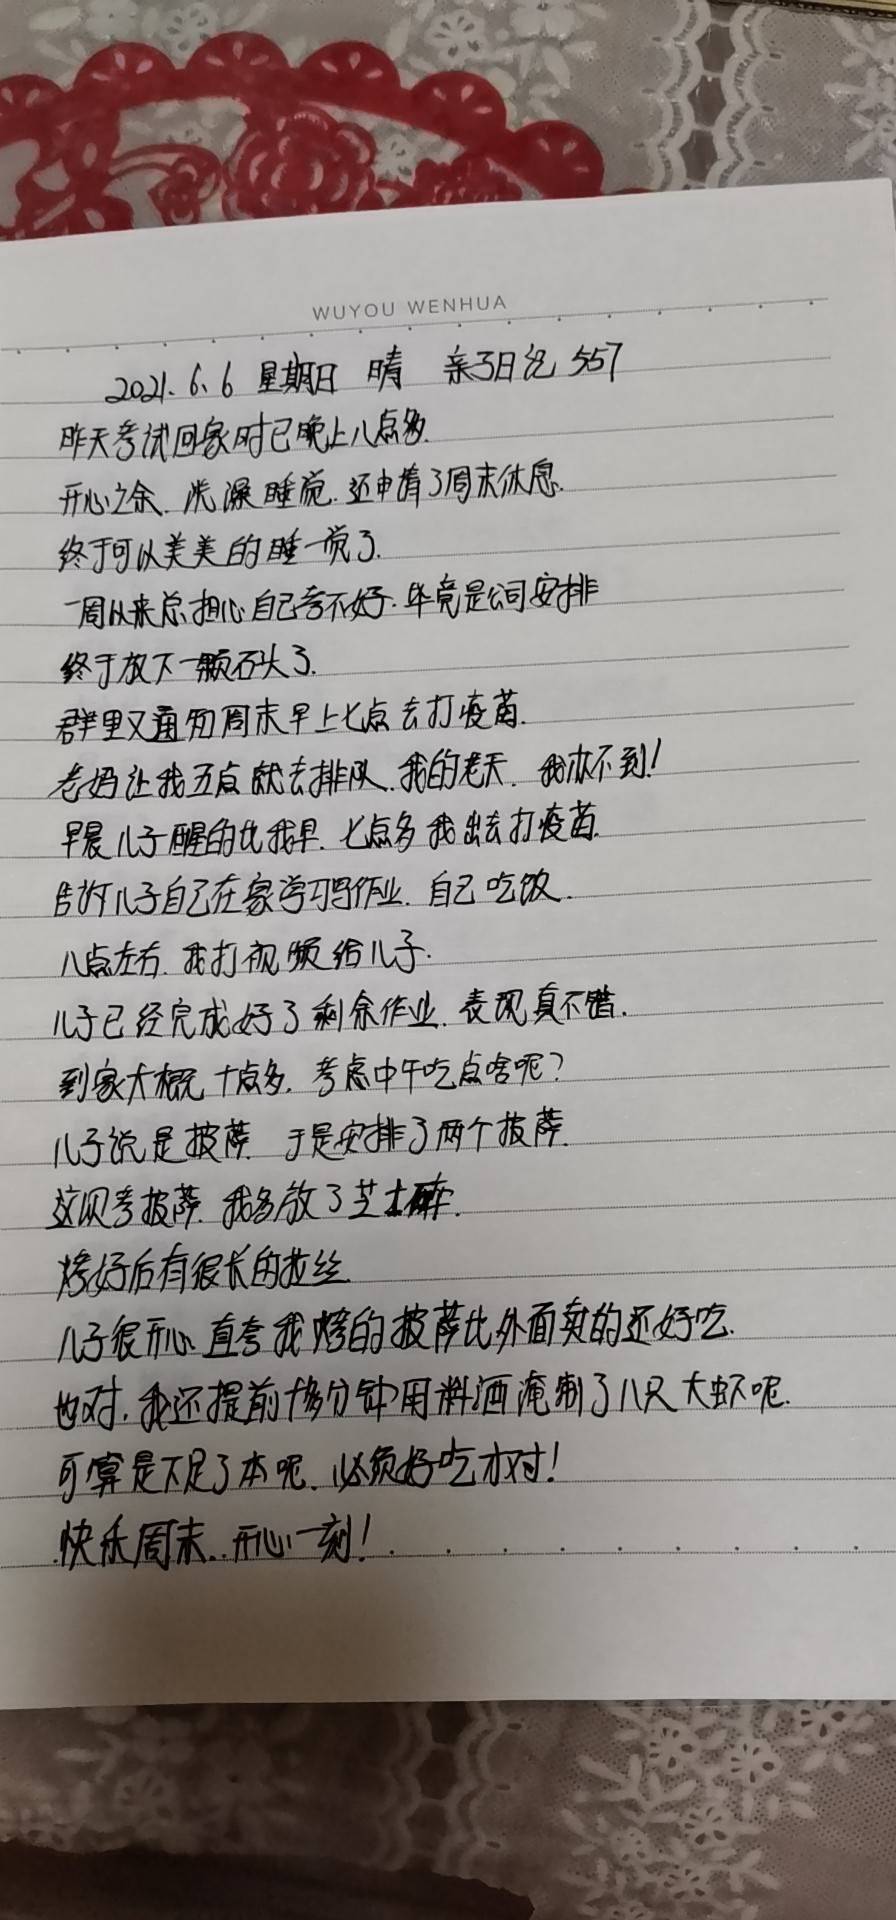 WUYOU WENHUA
2021.6.6 星期日 晴 亲子日记 557
昨天考试回家时已晚上八点多.
开心之余.洗澡睡觉.还申请了周末休息.
终于可以美美的睡一觉了.
一周以来总担心自己考不好.毕竟是公司安排
终于放下一颗石头了.
群里又通知周末早上七点去打疫苗.
老妈让我五点就去排队.我的老天.我做不到!
早晨儿子醒的比我早.七点多我出去打疫苗.
告诉儿子自己在家学习写作业.自己吃饭.
八点左右.我打视频给儿子.
儿子已经完成好了剩余作业.表现真不错.
到家大概十点多.考虑中午吃点啥呢?
儿子说是披萨 于是安排了两个披萨.
这次考披萨.我多放了芝士碎.
烤好后有很长的拉丝.
儿子很开心.直夸我烤的披萨比外面卖的还好吃.
也对.我还提前十多分钟用料酒淹制了八只大虾呢.
可算是下足了本呢.必须好吃才对!
快乐周末..开心一刻!